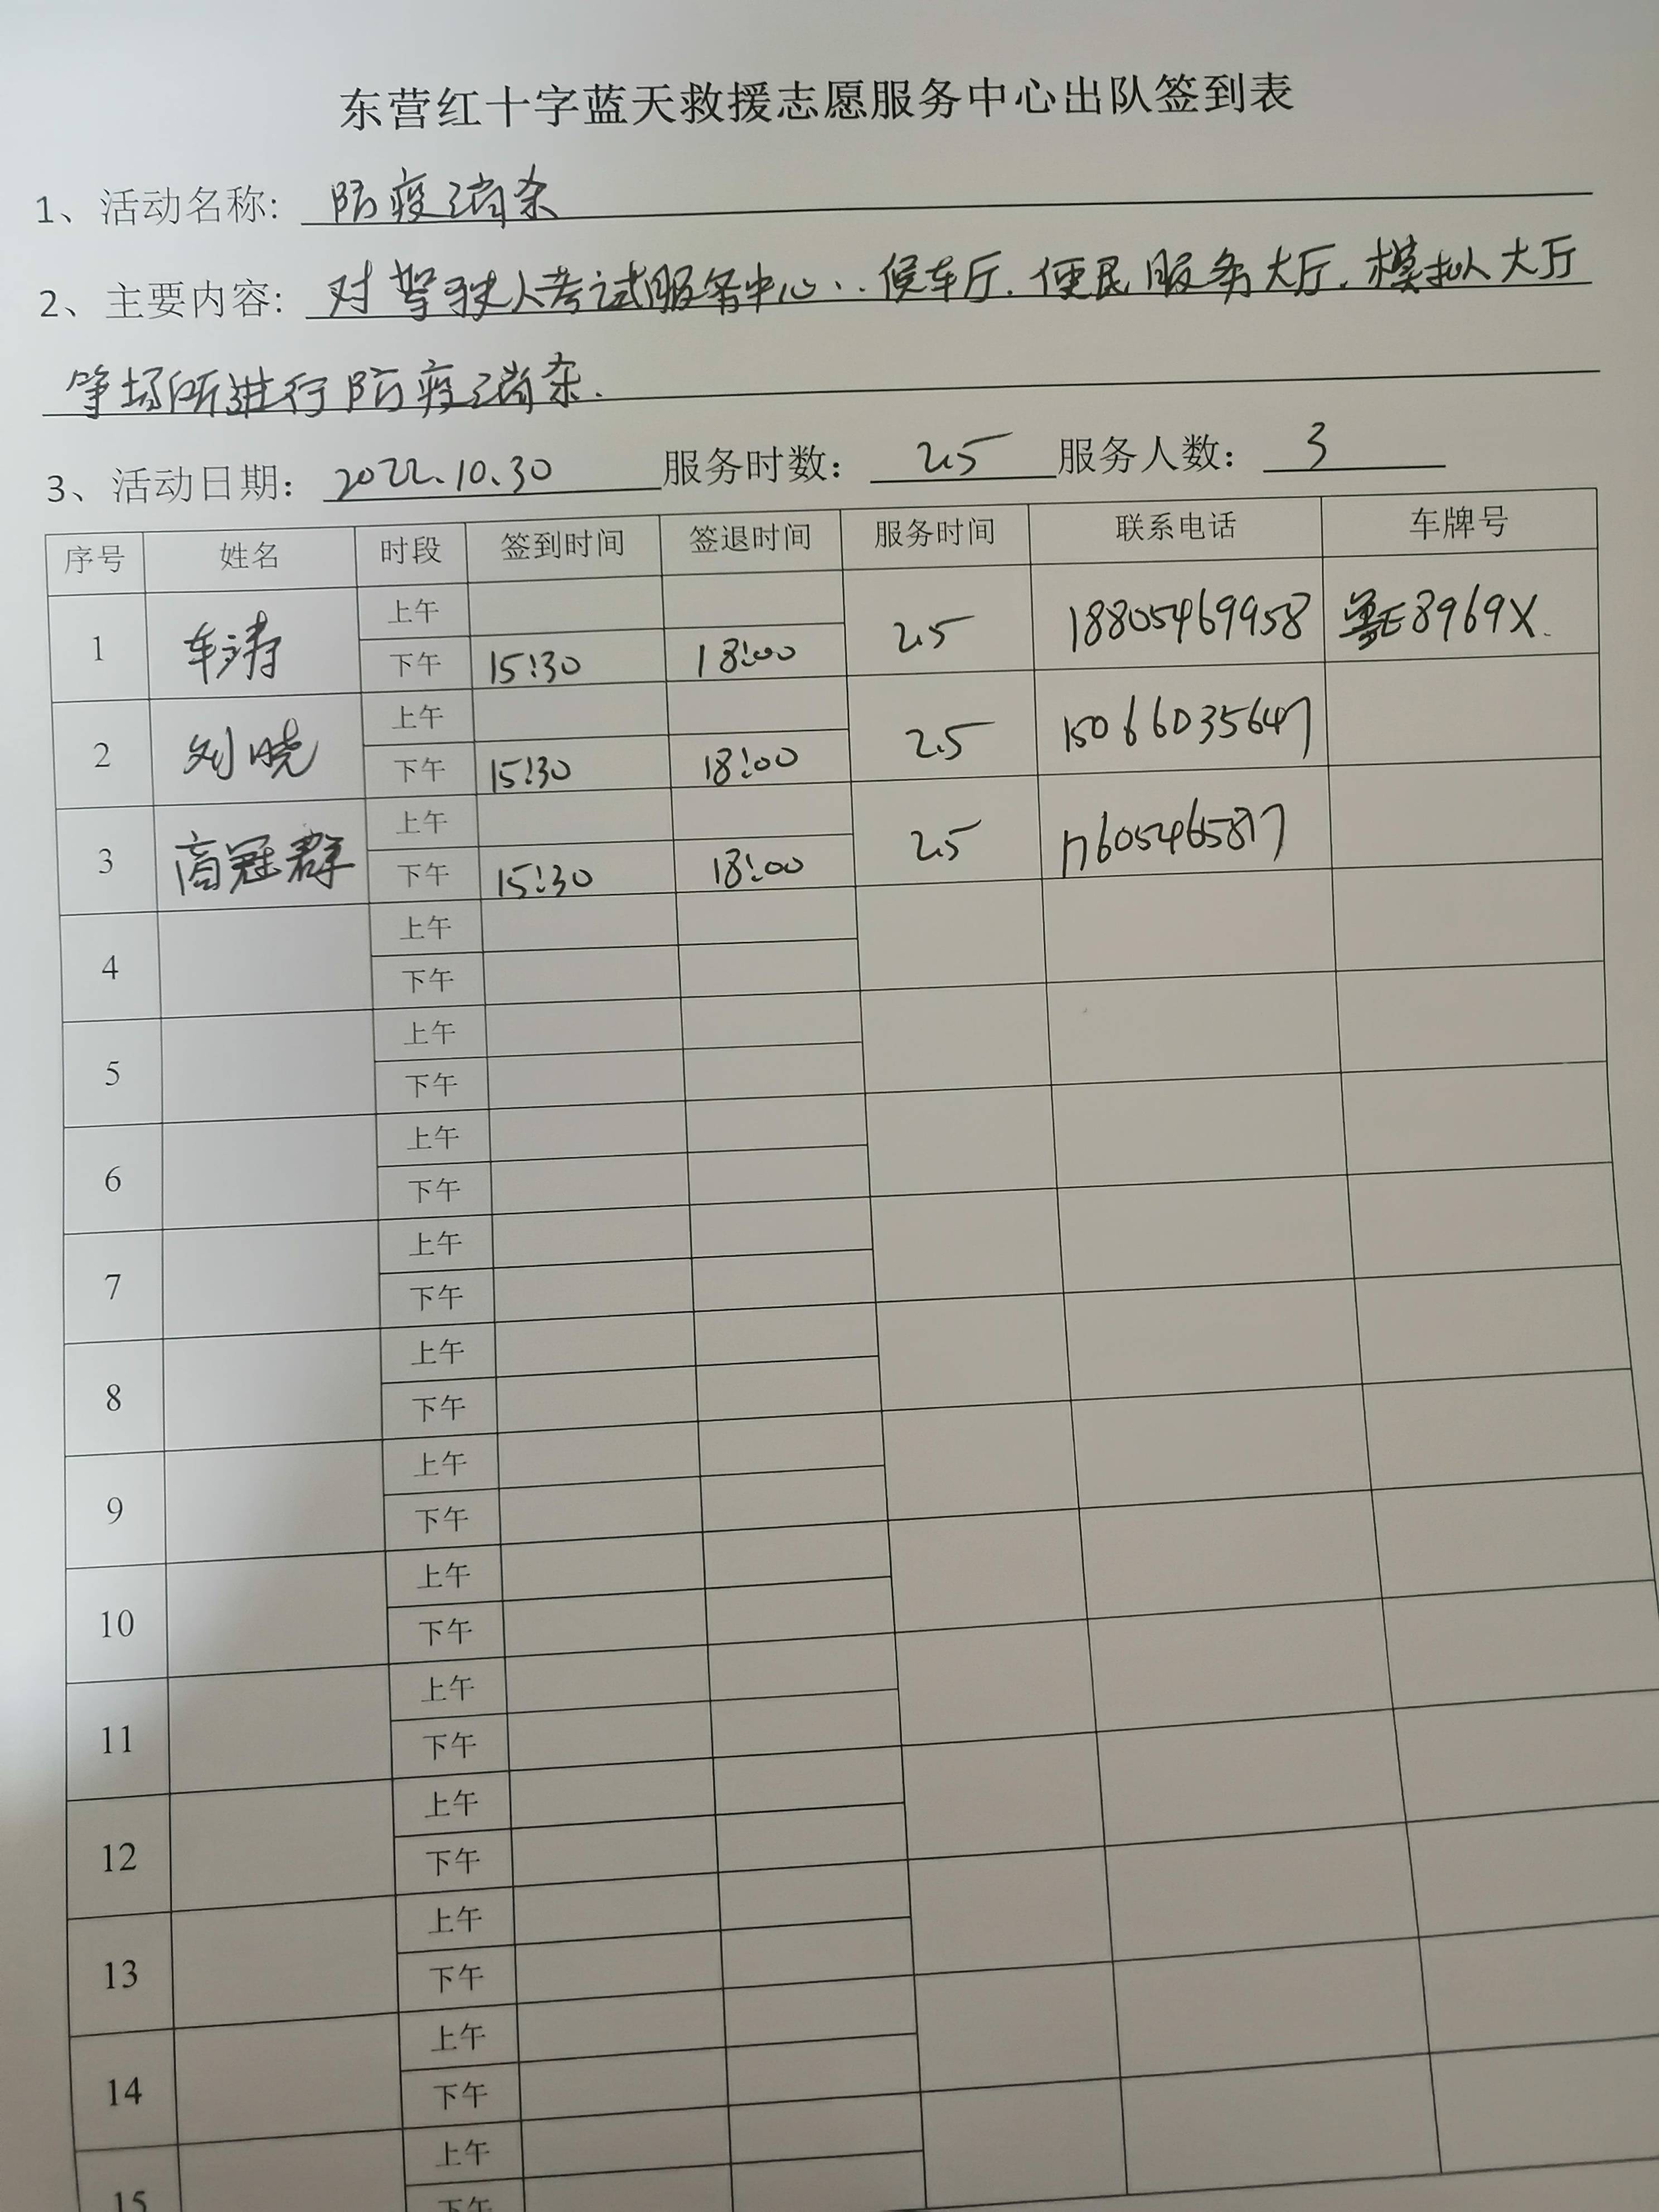 东营红十字蓝天救援志愿服务中心出队签到表
1、活动名称: 防疫消杀
2、主要内容: 对驾驶人考试服务中心、候车厅、便民服务大厅、模拟大厅
等场所进行防疫消杀.
3、活动日期: 2022.10.30 服务时数: 2.5 服务人数: 3
序号 姓名 时段 签到时间 签退时间 服务时间 联系电话 车牌号
上午
1 车涛 2.5 18805469958 E8969X
下午 15:30 18:00
上午
2 刘晓 2.5 15066035647
下午 15:30 18:00
上午
3 商冠群 2.5 17605465817
下午 15:30 18:00
上午
4
下午
上午
5
下午
上午
6
下午
上午
7
下午
上午
8
下午
上午
9
下午
上午
10
下午
上午
11
下午
上午
12
下午
上午
13
下午
上午
14
下午
上午
15
下午